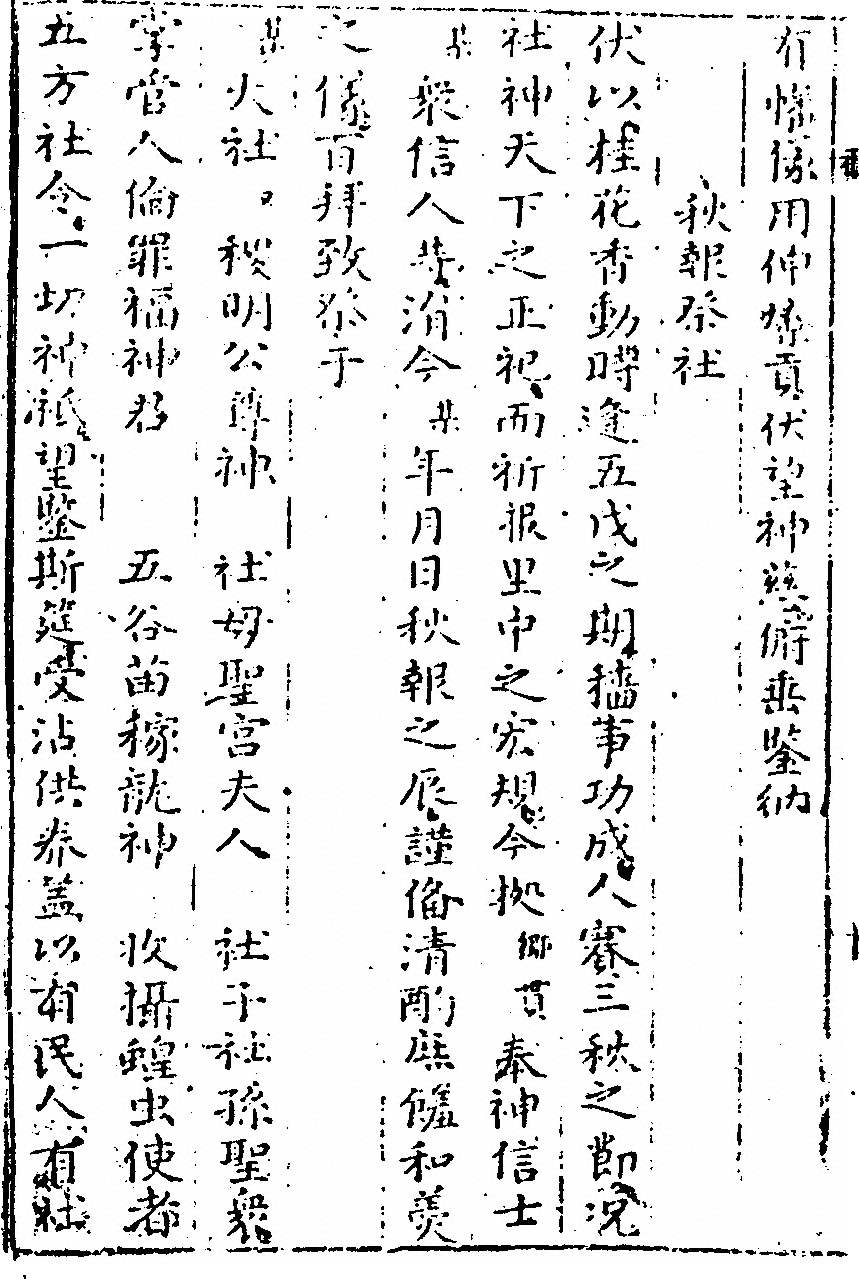 有幡像用伸燎貢伏望神慈俯垂鑒納
秋報祭社
伏以桂花香動時逢五戊之期穡事功成人賽三秋之節況
社神天下之正祀而祈報里中之宏規今拠鄉貫奉神信士
某衆信人等涓今某年月日秋報之辰謹俻清酌庶饈和羹
之儀百拜致祭于
某火社日稷明公尊神 社母聖宫夫人 社子社孫聖衆
掌管人倫罪福神君 五谷苗稼龍神 收攝蝗虫使者
五方社令一切神祇望鑒斯筵受沾供養盖以有民人有社